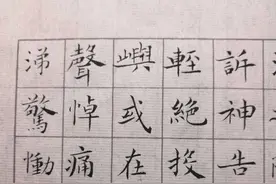 訴神告
輕絕投
嶼或在
聲悼痛
涕驚慟